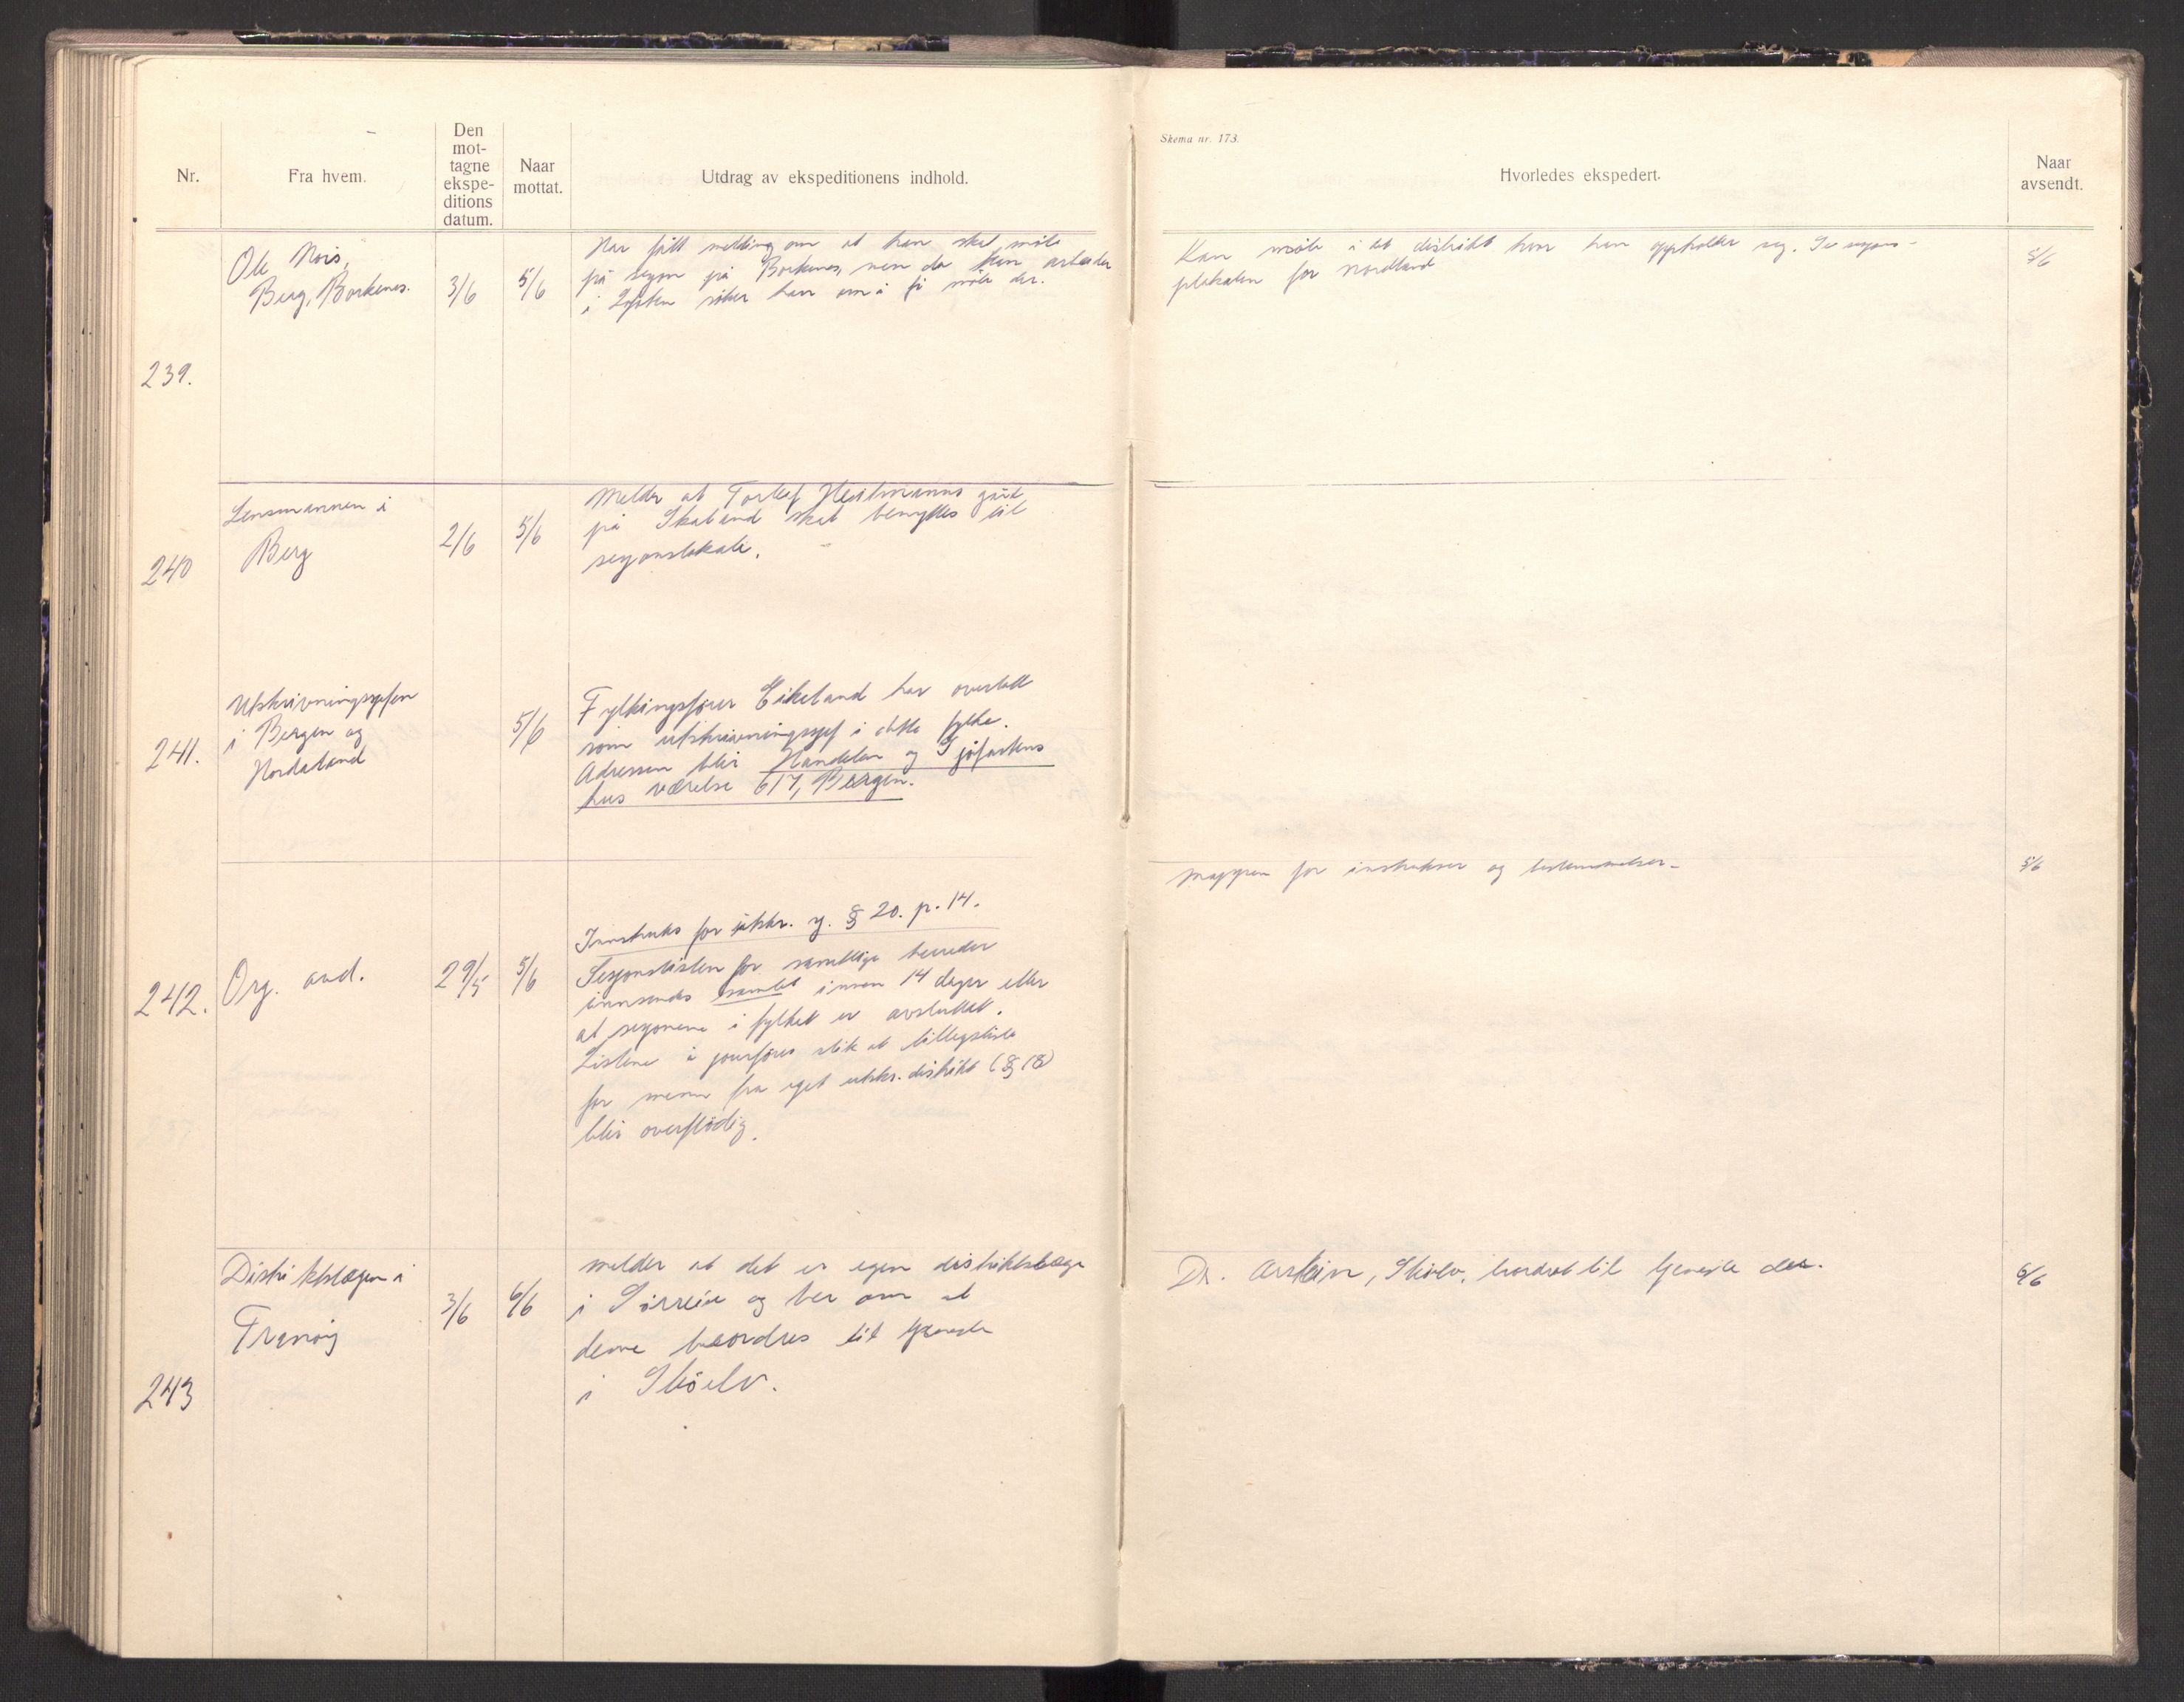 Nr.
Fra hvem.
Den
mot-
tagne
ekspe-
ditions
datum.
Naar
mottat.
Utdrag av ekspeditionens indhold.
Skema nr. 173.
Hvorledes ekspedert.
Naar
avsendt.
239.
Ole
Berg, Borkenes.
3/6
5/6
Har fått melding om at han skal møte
på sesjon på Borkenes, men da han arbeider
i Lofoten søker han om å få møte der.
Kan møte i det distrikt hvor han oppholder seg. Se sesjons-
plakaten for Nordland
5/6
240
Lensmannen i
Berg
2/6
5/6
Melder at Torleif gård
på Skaland skal benyttes til
sesjonslokale.
241.
Utskrivningssjefen
i Bergen og
Hordaland
5/6
Fylkingsfører Eikeland har overtatt
som utskrivningssjef i dette fylke.
Adressen blir Handelen og Sjøfartens
hus værelse 617, Bergen.
242.
Org. avd.
29/5
5/6
Instruks for utskr. sj. § 20. p. 14.
Sesjonslisten for samtlige herreder
innsendes samlet innen 14 dager etter
at sesjonene i fylket er avsluttet.
Listene å jourføres slik at tilleggsliste
for menn fra eget utskr. distrikt (§ 18)
blir overflødig.
Mappen for instrukser og bestemmelser.
5/6
243
Distriktslægen i
Tranøy
3/6
6/6
melder at det er egen distriktslæge
i Sørreisa og ber om at
denne beordres til tjeneste
i Skøelv.
Dr. Skøelv, beordret til tjeneste der.
6/6